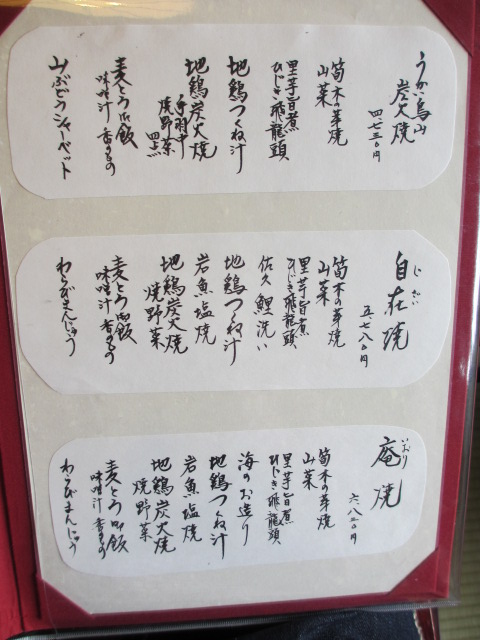 うかい鳥山
炭火焼
四七三〇円
筍木の芽焼
山菜
里芋旨煮
ひじき飛龍頭
地鶏つくね汁
地鶏炭火焼
手羽
焼野菜
四点
麦とろ御飯
味噌汁 香のもの
山ぶどうシャーベット
自在焼
じざい
五、七八〇円
筍木の芽焼
山菜
里芋旨煮
ひじき飛龍頭
佐久鯉洗い
地鶏つくね汁
岩魚塩焼
地鶏炭火焼
焼野菜
麦とろ御飯
味噌汁 香のもの
わらびまんじゅう
庵焼
いおり
六、八二〇円
筍木の芽焼
山菜
里芋旨煮
ひじき飛龍頭
海のお造り
地鶏つくね汁
岩魚塩焼
地鶏炭火焼
焼野菜
麦とろ御飯
味噌汁 香のもの
わらびまんじゅう